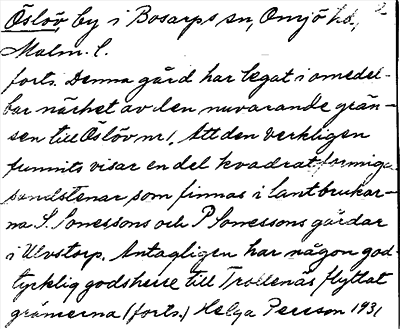 Öslöv, by i Bosarps sn, Onsjö hd., 2
Malm. l.
forts. Denna gård har legat i omedel-
bar närhet av den nuvarande grän-
sen till Öslöv nr 1. Att den verkligen
funnits visar en del kvadratformiga
sandstenar som finnas i lantbrukar-
na S. Sonessons och P Sonessons gårdar
i Ulvstorp. Antagligen har någon god-
tycklig godsherre till Trollenäs flyttat
gränserna (forts.) Helga Persson 1931